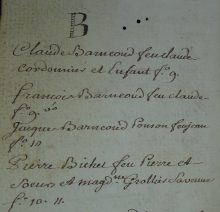 B
Claude Barneoud feu claude
Cordonnier et Enfant f.º 9.
françois Barneoud feu claude
f.º 9. vo
Jacque Barneoud Ponson feu jean
f.º 10
Pierre Bichet feu Pierre et
Soeurs et magd.ne Grollier sa veuve
f.º 10. 11.